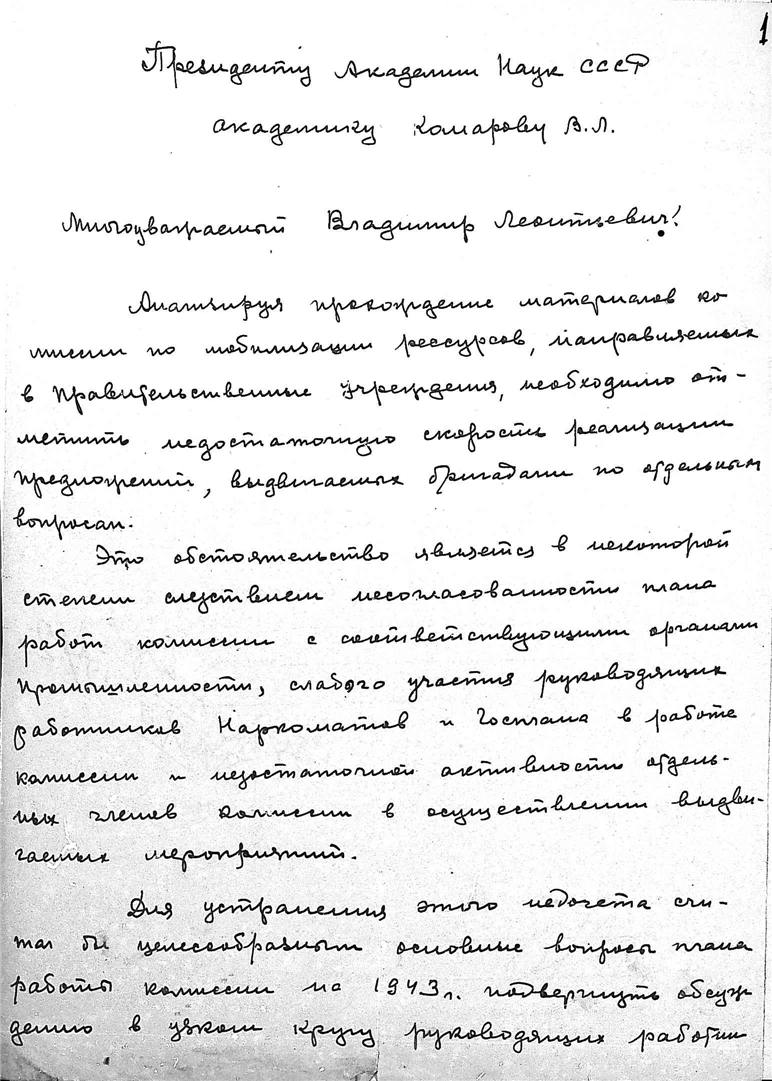 1
Президенту Академии Наук СССР
академику Комарову В.Л.
Многоуважаемый Владимир Леонтьевич!
Анализируя прохождение материалов ко
миссии по мобилизации рессурсов, направляемых
в правительственные учреждения, необходимо от-
метить недостаточную скорость реализации
предложений, выдвигаемых бригадами по отдельным
вопросам.
Это обстоятельство является в некоторой
степени следствием несогласованности плана
работ комиссии с соответствующими органами
промышленности, слабого участия руководящих
работников Наркоматов и Госплана в работе
комиссии и недостаточной активности отдель-
ных членов комиссии в осуществлении выдви-
гаемых мероприятий.
Для устранения этого недочета счи-
тал бы целесообразным основные вопросы плана
работы комиссии на 1943 г. подвергнуть обсуж
дению в узком кругу руководящих работни